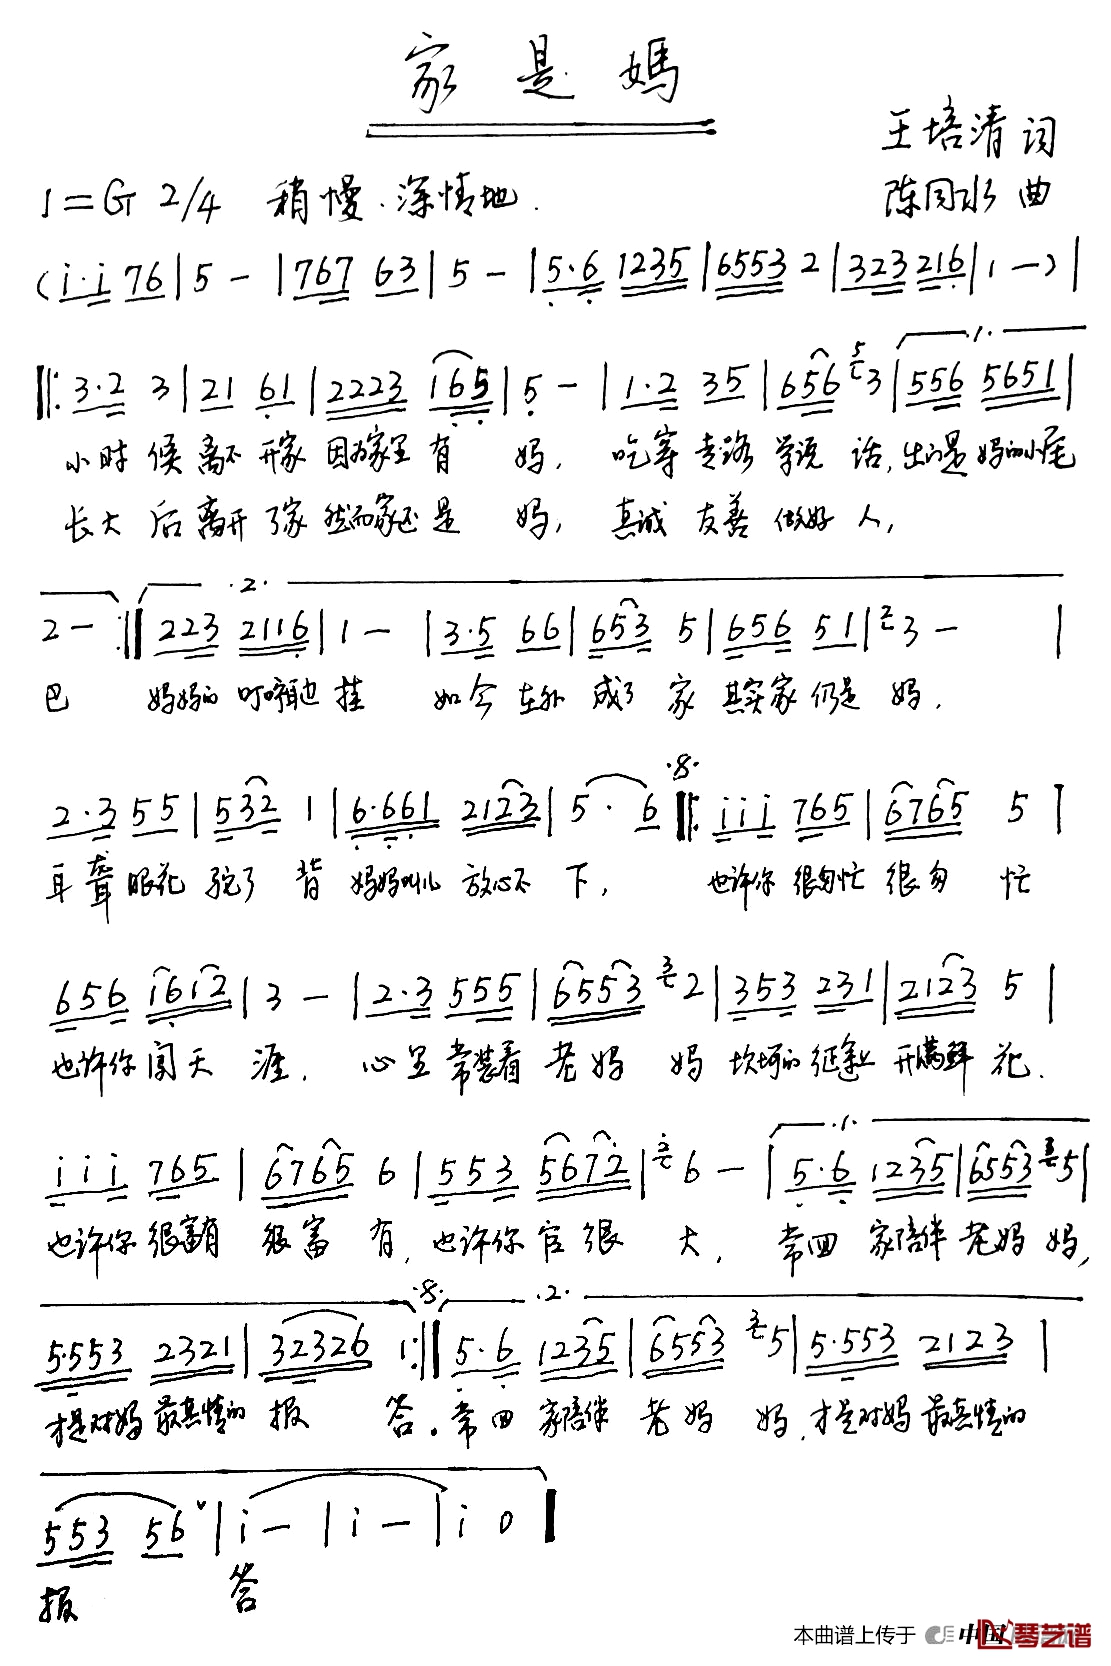 家是媽
王培清 词
1=G 2/4 稍慢.深情地.
陈同水 曲
(i·i 76|5 -|767 63|5 -|5·6 1235|6553 2|323 216|1 -)|
.1.
‖:3·2 3|21 61|2223 165|5 -|1·2 35|656 5 3|556 5651|
小时 候 离不 开家 因为家里 有 妈, 吃穿 走路 学说 话, 出门是 妈的小尾
长大 后 离开 了家 然而家还 是 妈, 真诚 友善 做好 人,
.2.
2 - :‖223 2116|1 -|3·5 66|653 5|656 51|2 3 -|
巴 妈妈的 叮咛耳边 挂 如今 在外 成了 家 其实家 仍是 妈.
.8.
2·3 55|532 1|6·661 2123|5· 6‖:iii 765|6765 5|
耳聋 眼花 驼了 背 妈妈叫儿 放心不 下, 也许你 很匆忙 很匆 忙
656 1612|3 -|2·3 555|6553 3 2|353 231|2123 5|
也许你 闯天 涯. 心里 常装着 老妈 妈 坎坷的 征途上 开满鲜 花.
.1.
iii 765|6765 6|553 5672|2 6 -|5·6 1235|6553 3 5|
也许你 很富有 很富 有, 也许你 官很 大, 常回 家陪伴 老妈 妈,
.8. .2.
5·553 2321|32326 1:‖5·6 1235|6553 3 5|5·553 2123|
才是对妈 最真情的 报 答. 常回 家陪伴 老妈 妈, 才是对妈 最真情的
553 56 ∨|i -|i -|i 0‖
报 答
本曲谱上传于 中国 琴艺谱